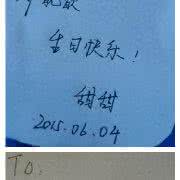 生日快乐!
甜甜
2015.06.04
TO: